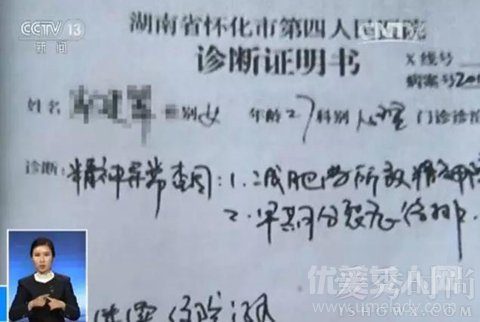 CCTV 13
新闻
湖南省怀化市第四人民医院
诊断证明书
X线号
病案号200
姓名 性别 女 年龄 27 科别 心理 门诊诊
诊断: 精神异常查因: 1. 减肥药所致精神障
2. 早期分裂症待排.
优爱秀人网尚
www.umelady.com
SHOWX.COM